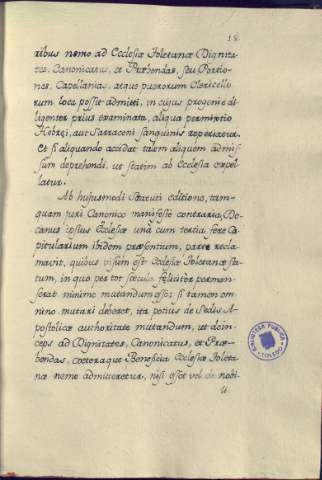 18.
ribus nemo ad Ecclesiæ Toletanæ Dignita
tes, Canonicatus, et Præbendas, seu Portio
nes, Capellanias, atque puerorum Clericello
rum loca possit admitti, in cujus progenie di
ligenter prius examinata, aliqua permixtio
Hebręi, aut Sarraceni sanguinis reperiatur.
Et si aliquando accidat talem aliquem admis
sum deprehendi, ut statim ab Ecclesia expel
latur.
Ab hujusmodi Statuti editione, tam-
quam juri Canonico manifestè contraria, De
canus ipsius Ecclesiæ unà cum tertia ferè Ca
pitularium ibidem præsentium, parte recla
mavit, quibus visum est Ecclesiæ Toletanæ sta
tum, in quo per tot sæcula feliciter perman
serat minimè mutandum esse: si tamen om
nino mutari deberet, ita potius de Sedis A
postolicæ authoritate mutandum, ut dein-
ceps ad Dignitates, Canonicatus, et Præ-
bendas, cæteraque Beneficia Ecclesiæ Toleta
næ nemo admitteretur, nisi esset vel de nobi-
li
BIBLIOTECA PUBLICA
TOLEDO